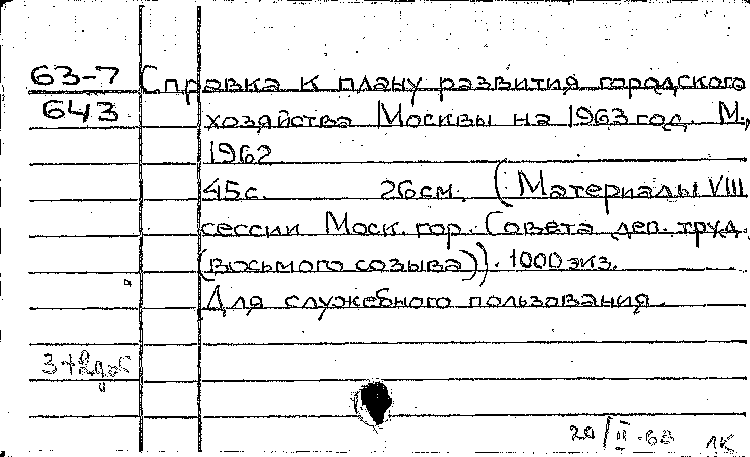 63-7
643
Справка к плану развития городского
хозяйства Москвы на 1963 год. М.,
1962
45с. 26см. (Материалы VIII
сессии Моск. гор. Совета деп. труд.
(восьмого созыва)). 1000 экз.
Для служебного пользования.
20/II-63 ЛК